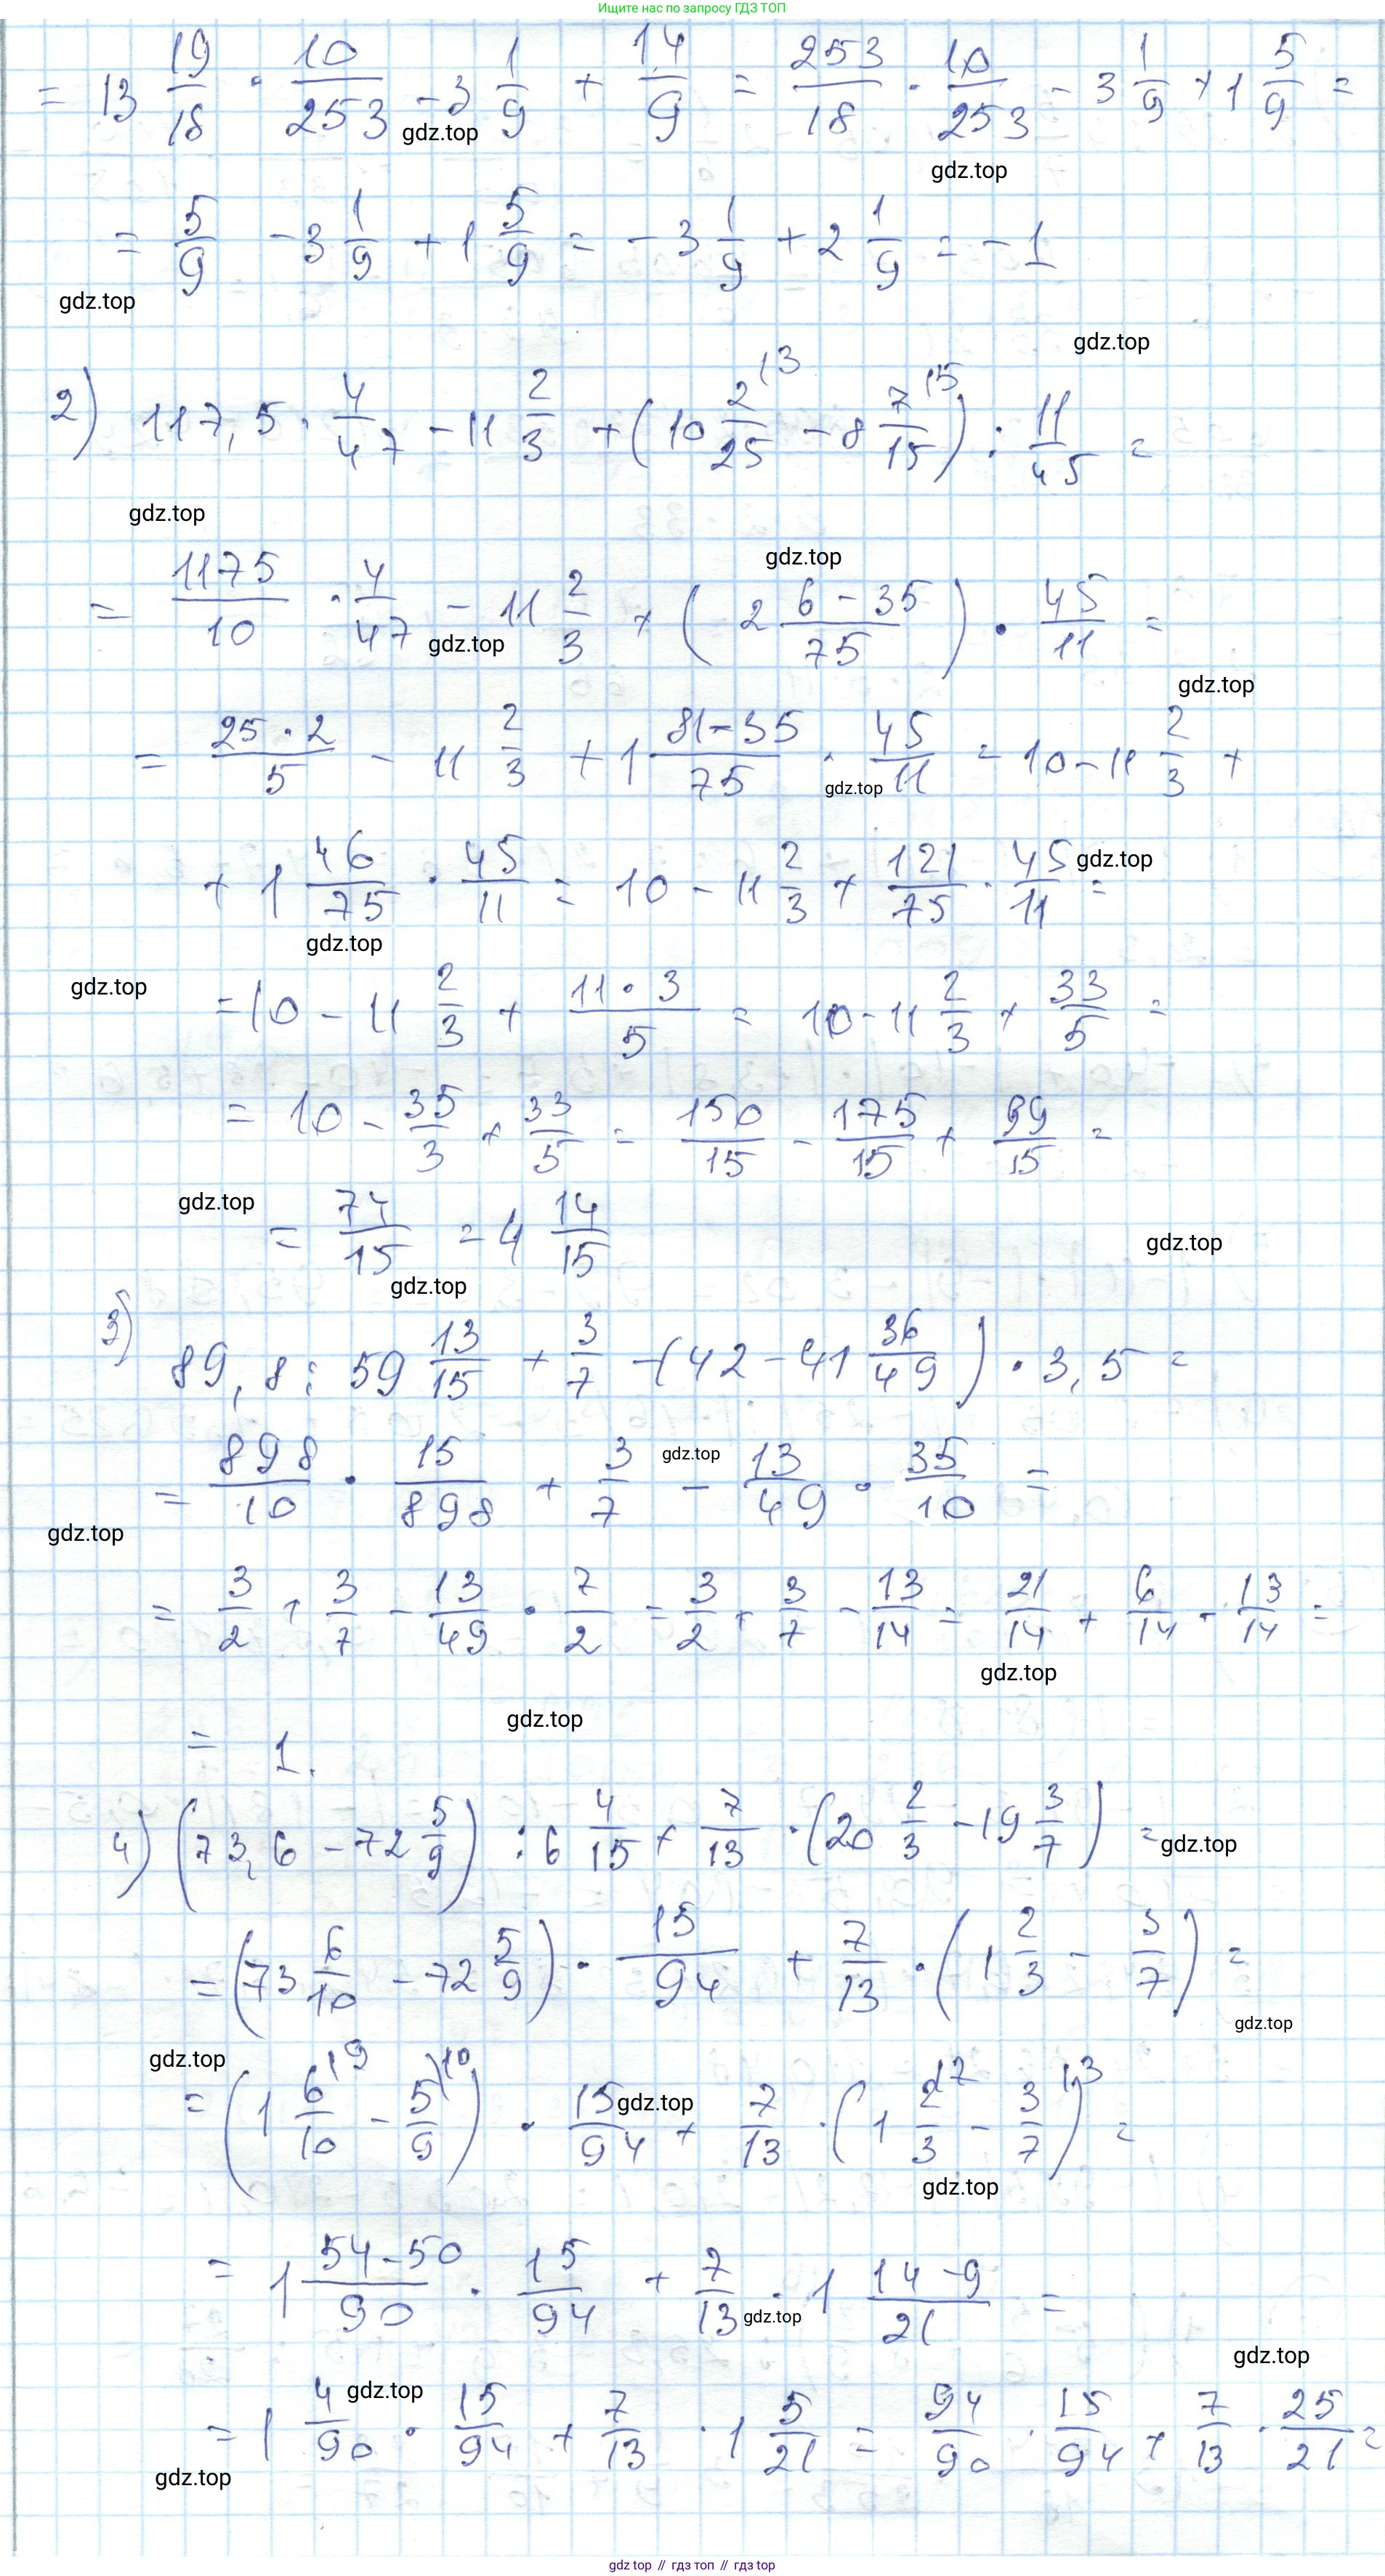 Ищите нас по запросу ГДЗ ТОП
= 13 19/18 · 10/253 - 3 1/9 + 14/9 = 253/18 · 10/253 - 3 1/9 + 1 5/9 =
gdz.top
gdz.top
= 5/9 - 3 1/9 + 1 5/9 = - 3 1/9 + 2 1/9 = - 1
gdz.top
gdz.top
2) 117,5 · 4/47 - 11 2/3 + (10 2/25 (3 - 8 7/15 (5) : 11/45 =
gdz.top
gdz.top
= 1175/10 · 4/47 - 11 2/3 + (2 (6 - 35)/75) · 45/11 =
gdz.top
gdz.top
= (25 · 2)/5 - 11 2/3 + 1 (81 - 35)/75 · 45/11 = 10 - 11 2/3 +
gdz.top
+ 1 46/75 · 45/11 = 10 - 11 2/3 + 121/75 · 45/11 =
gdz.top
gdz.top
gdz.top
= 10 - 11 2/3 + (11 · 3)/5 = 10 - 11 2/3 + 33/5 =
= 10 - 35/3 + 33/5 = 150/15 - 175/15 + 99/15 =
gdz.top
= 74/15 = 4 14/15
gdz.top
gdz.top
3) 89,8 : 59 13/15 + 3/7 - (42 - 41 36/49) · 3,5 =
= 898/10 · 15/898 + 3/7 - 13/49 · 35/10 =
gdz.top
gdz.top
= 3/2 + 3/7 - 13/49 · 7/2 = 3/2 + 3/7 - 13/14 = 21/14 + 6/14 - 13/14 =
gdz.top
gdz.top
= 1.
4) (73,6 - 72 5/9) : 6 4/15 + 7/13 · (20 2/3 - 19 3/7) =
gdz.top
= (73 6/10 - 72 5/9) · 15/94 + 7/13 · (1 2/3 - 3/7) =
gdz.top
gdz.top
= (1 6/10 (9 - 5/9 (10) · 15/94 + 7/13 · (1 2/3 (7 - 3/7 (3) =
gdz.top
gdz.top
= 1 (54 - 50)/90 · 15/94 + 7/13 · 1 (14 - 9)/21 =
gdz.top
gdz.top
= 1 4/90 · 15/94 + 7/13 · 1 5/21 = 94/90 · 15/94 + 7/13 · 25/21 =
gdz.top
gdz.top
gdz top // гдз топ // гдз top